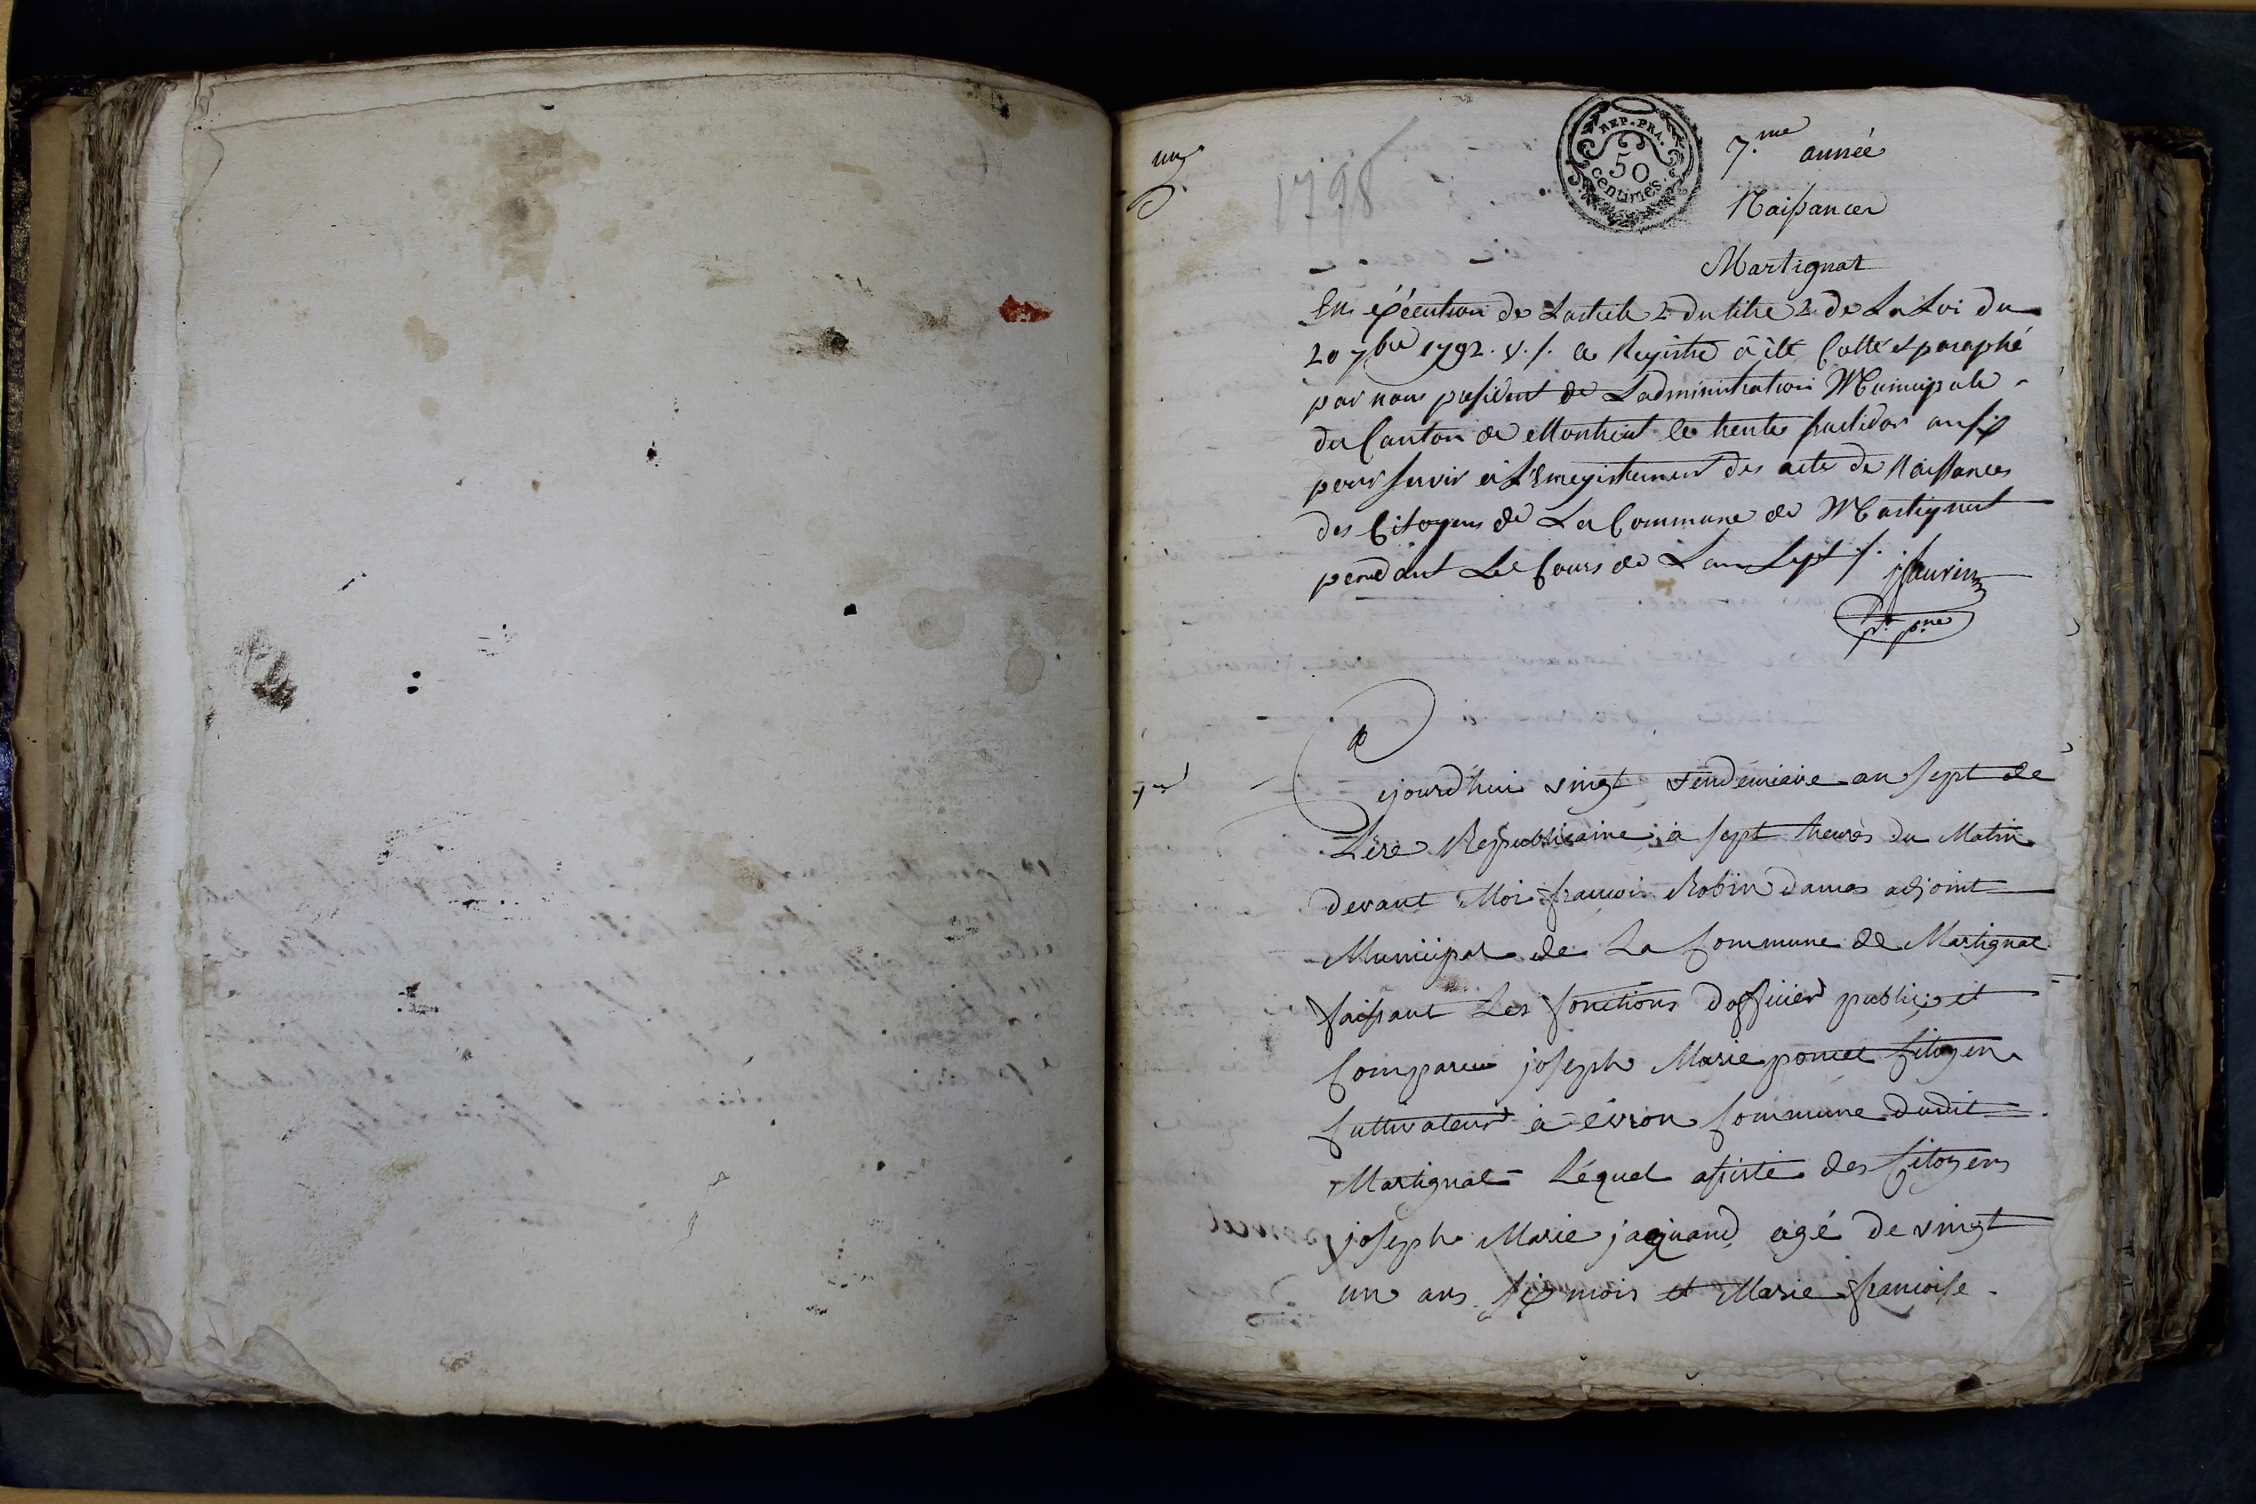 un
1798
REP. FRA.
50
centimes.
7.me année
Naissances
Martignat
En éxécution de Larticle 2 du titre 2 de La Loi du
20 7bre 1792. v. s. ce Registre à été Cotté et paraphé
par nous president de Ladministration Municipale
du Canton de Montreal le trente fructidor an six
pour servir à L'Enregistrement des acte de Naissances
des Citoyens de La Commune de Martignat
pendant Le Cours de L an Sept
pt. pne
1er
Cejourd'hui vingt vendemiaire an sept de
Lére Republicaine à sept heures du Matin
devant Moi francois Robin dames adjoint
Municipal de La Commune de Martignat
faisant Les fonctions dofficier public et
Comparu joseph Marie poncet Citoyen
Cultivateur à évron Commune dudit
Martignat Léquel assisté des Citoyens
joseph Marie jaquand agé de vingt
un ans six mois et Marie francoise